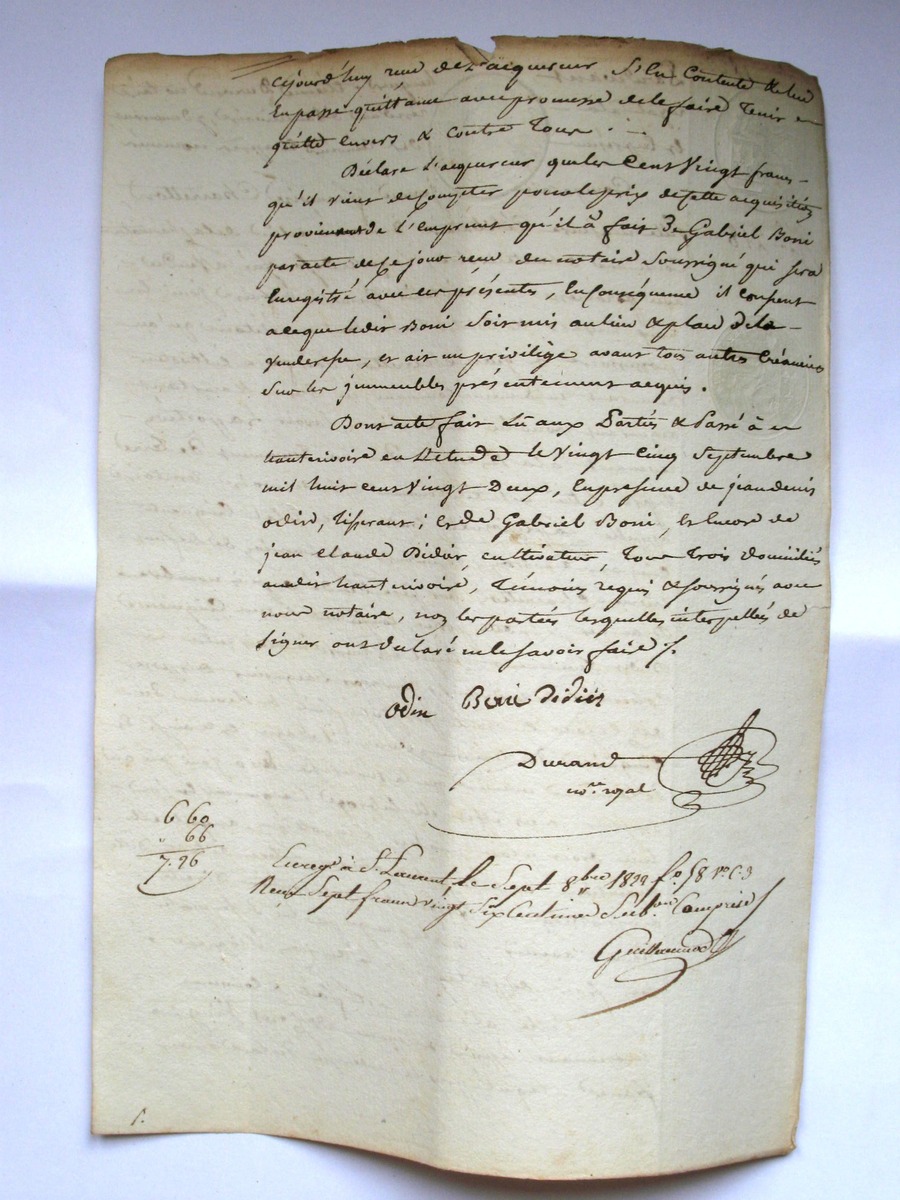 cejourd'huy reçu de l'acquereur s'en contente & lui
en passe quittance avec promesse de le faire tenir
quitte envers & contre tous . —
Déclare l'acquereur que les cent vingt francs
qu'il vient de compter pour le prix de cette acquisition
proviennent de l'emprunt qu'il a fait de Gabriel Boni
par acte de ce jour reçu du notaire soussigné qui sera
enregistré avec ces présentes, en conséquence il consent
a ce que ledit Boni soit mis au lieu & place de la
venderesse, et ait un privilège avant tous autres créanciers
sur les immeubles présentement acquis .
Dont acte fait lu aux parties & passé à
hauterivoire en l'etude le vingt cinq septembre
mil huit cent vingt deux, en présence de jean denis
odin, tisserant ; et de Gabriel Boni, et encore de
jean claude Didier, cultivateur, tous trois domiciliés
audit hauterivoire, témoins requis & soussignés avec
nous notaire, non les parties lesquelles interpellés de
signer ont déclaré ne le savoir faire /.
odin Boni didier
Durand
no.re royal
6 60
66
7.26
Enreg.é à S.t Laurent, le sept 8bre 1822 f.o 58 v.o C.3
Reçu sept francs vingt six centimes sub.on comprise
1.